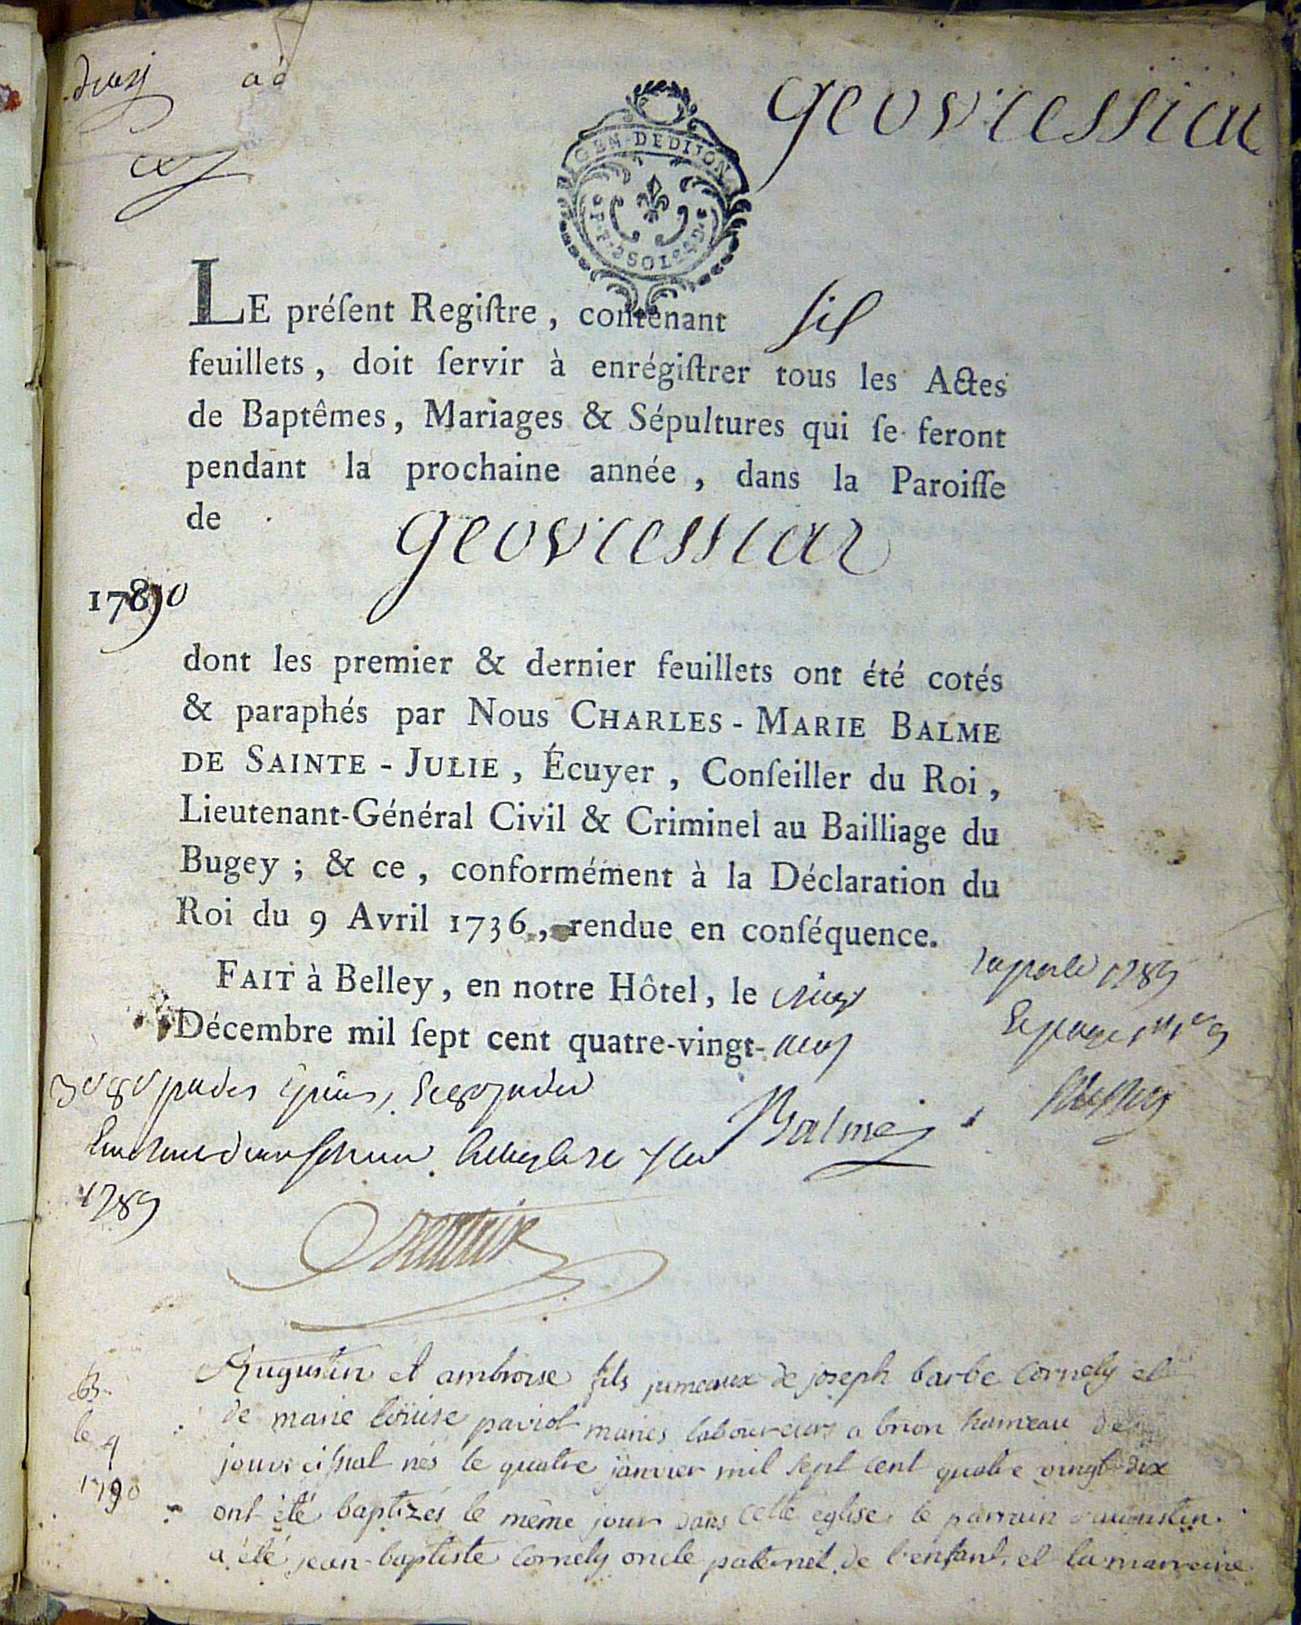 geovressiat
GEN. DE DIJON
LE préſent Regiſtre, contenant six
feuillets, doit ſervir à enrégiſtrer tous les Actes
de Baptêmes, Mariages & Sépultures qui ſe feront
pendant la prochaine année, dans la Paroiſſe
de geovressiat
1790
dont les premier & dernier feuillets ont été cotés
& paraphés par Nous CHARLES-MARIE BALME
DE SAINTE-JULIE, Écuyer, Conſeiller du Roi,
Lieutenant-Général Civil & Criminel au Bailliage du
Bugey; & ce, conformément à la Déclaration du
Roi du 9 Avril 1736, rendue en conſéquence.
FAIT à Belley, en notre Hôtel, le
Décembre mil ſept cent quatre-vingt-neuf
1789
Balme
1789
B.
le 4
1790
Augustin et ambroise fils jumeaux de joseph barbe Cornely et
de marie louise paviot mariés laboureurs a brion hameau de
nés le quatre janvier mil sept cent quatre vingt dix
ont été baptizés le même jour dans cette eglise le parrain d'augustin
a été jean-baptiste Cornely oncle paternel de l'enfant, et la marreine